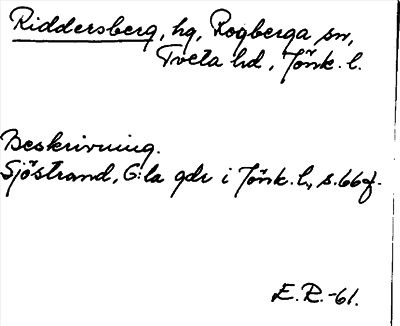 Riddersberg, hg, Rogberga sn,
Tveta hd, Jönk. l.
Beskrivning.
Sjöstrand, G:la gdr i Jönk. l., s. 66 f.
E. R. -61.